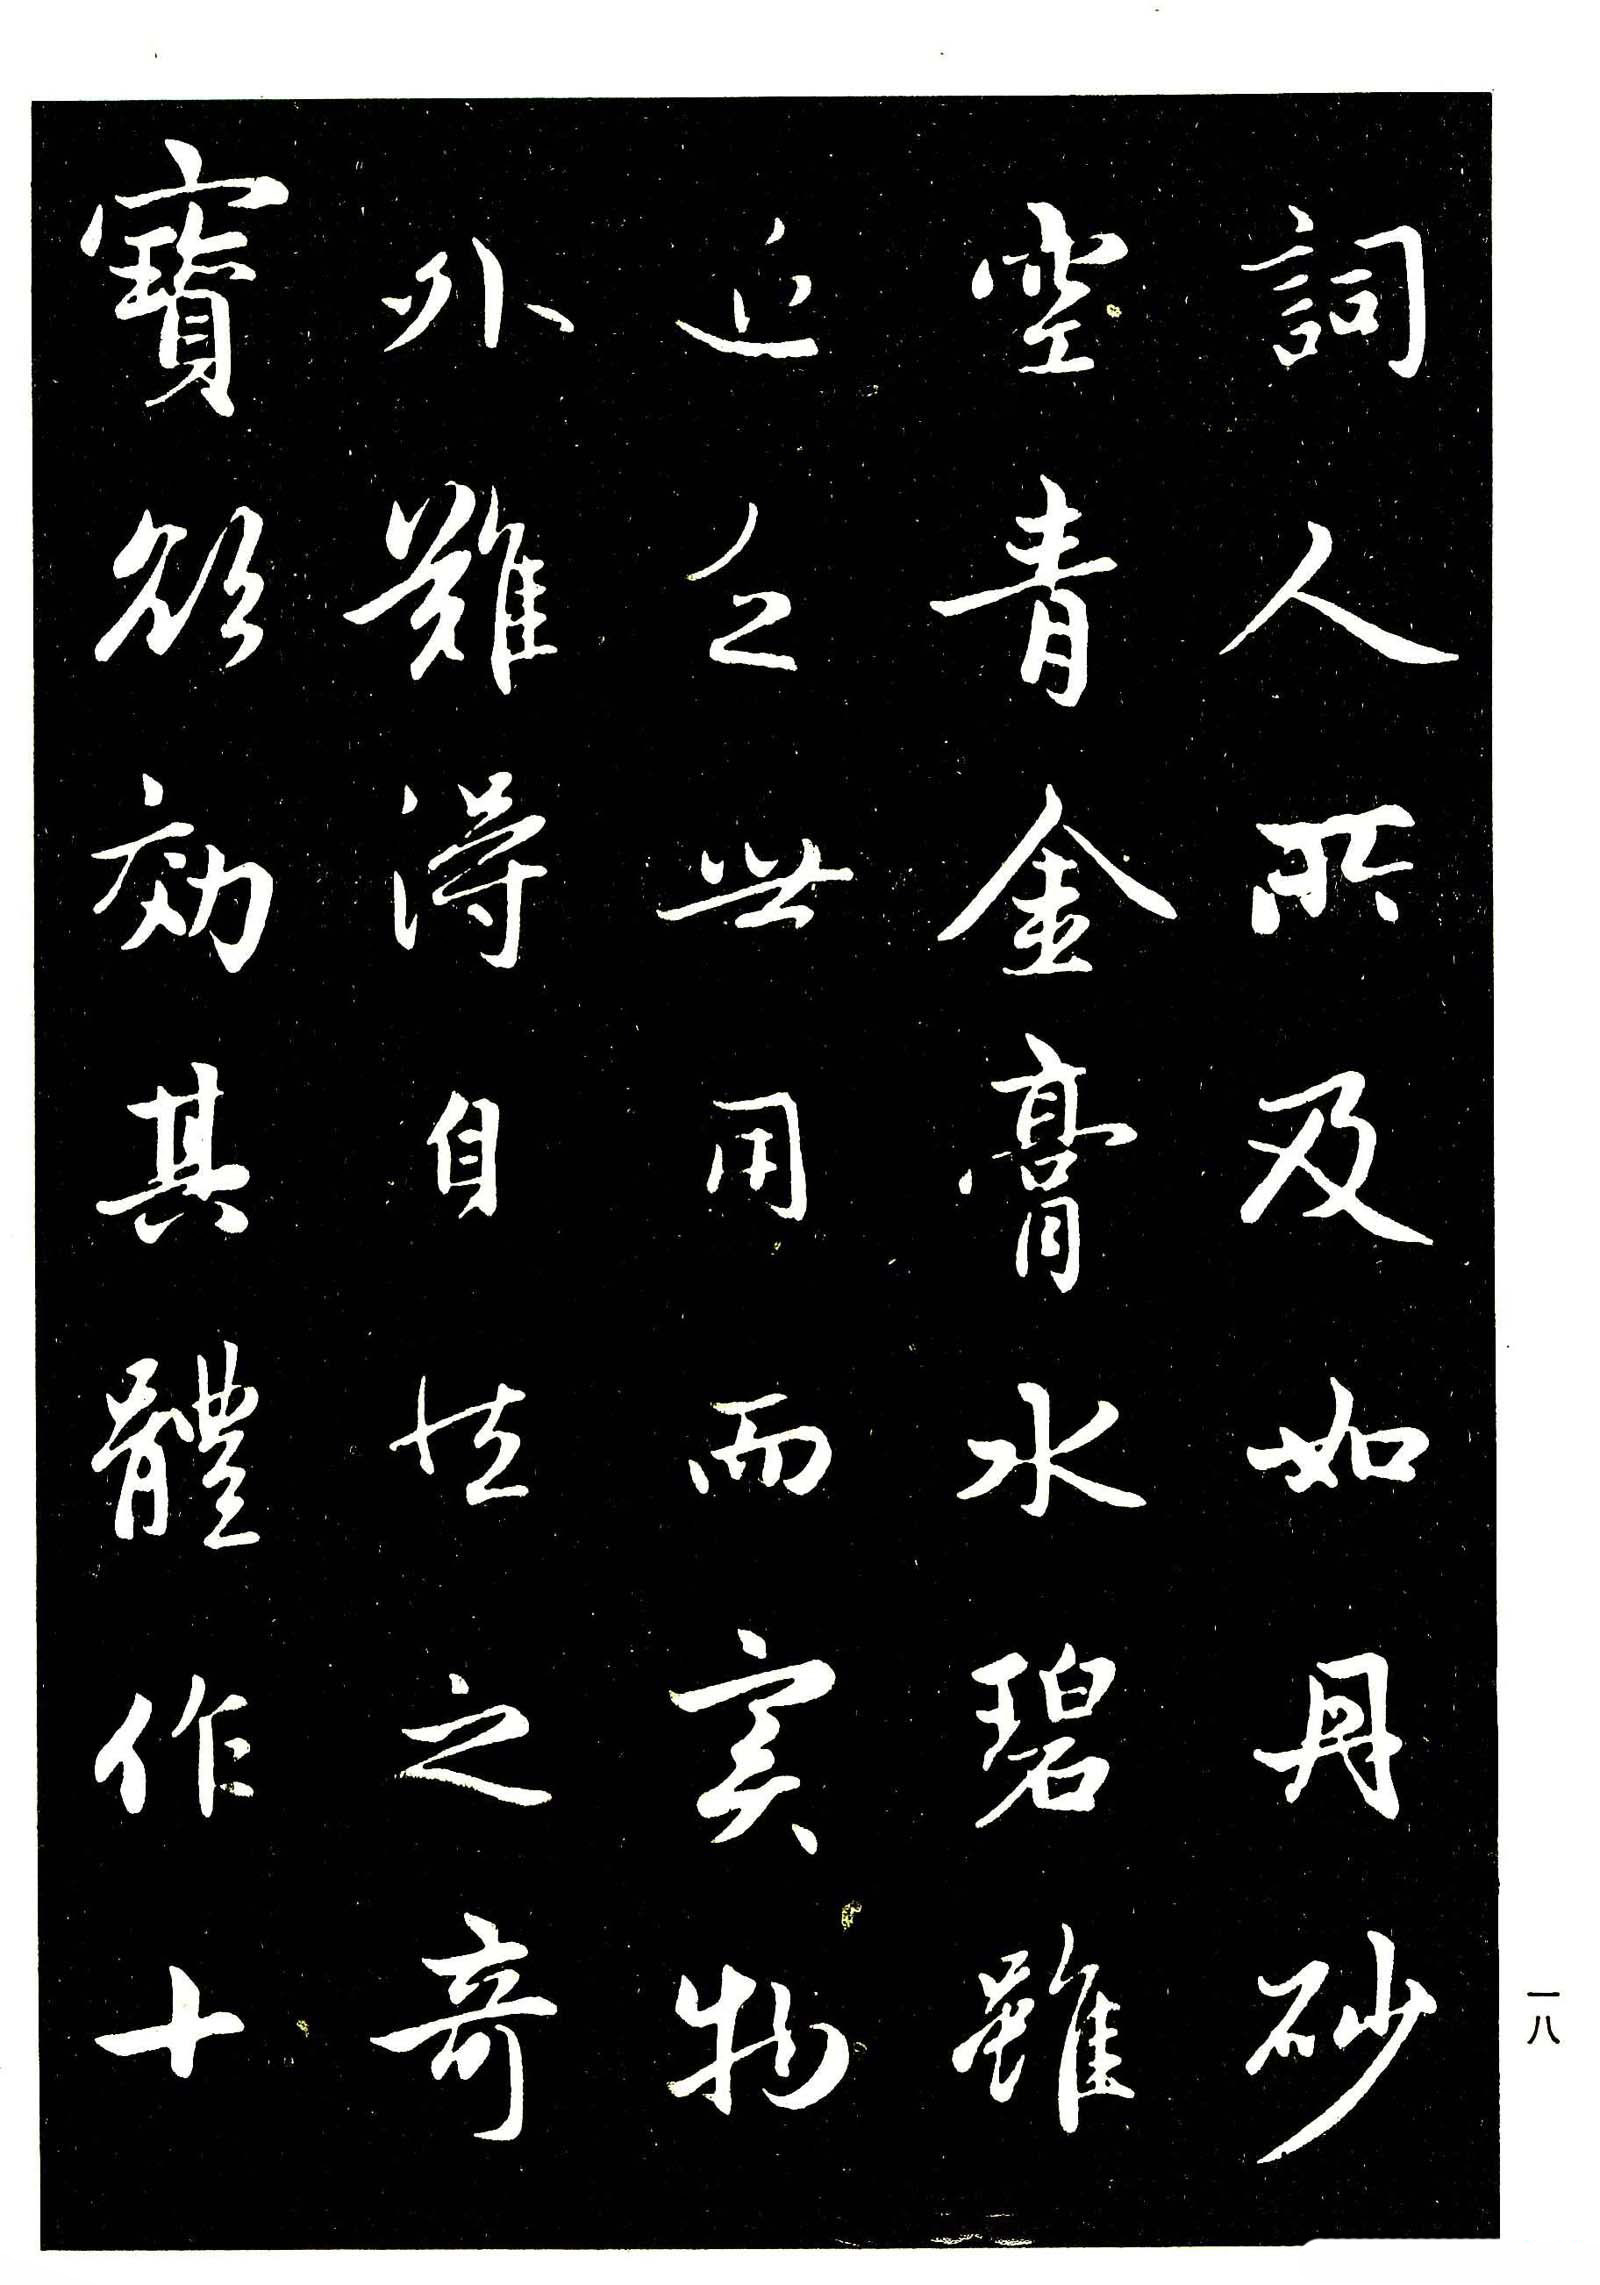 詞人所及如丹砂
空青金膏水碧雖
近乏世用而實物
外難得自然之奇
寶欲効其體作十
一八